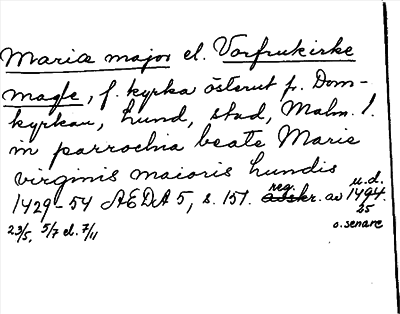 Maria major el. Vorfrukirke
magle, f. kyrka österut f. Dom-
kyrkan, Lund, stad, Malm. l.
in parrochia beate Marie
virginis maioris Lundis
1429-54 ÆDA 5, s. 151. reg. av u.d. 1494.
23/5, 5/7 el. 7/11 25 o. senare